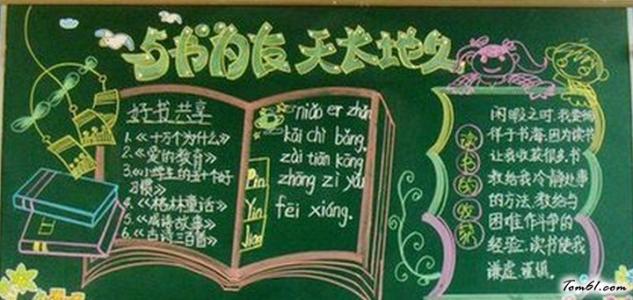 与书为友 天长地久
好书共享
1.《十万个为什么》
2.《爱的教育》
3.《小学生的五十个好
习惯》
4.《格林童话》
5.《成语故事》
6.《古诗三百首》
Pin
Yin
niǎo er zhǎn
kāi chì bǎng.
zài tiān kōng
zhōng zì yóu
fēi xiáng.
读书的收获
闲暇之时,我爱徜
徉于书海,因为读书
让我收获很多.书
教给我冷静处事
的方法,教给与
困难作斗争的
经验.读书使我
谦虚、谨慎.
Tom61.com